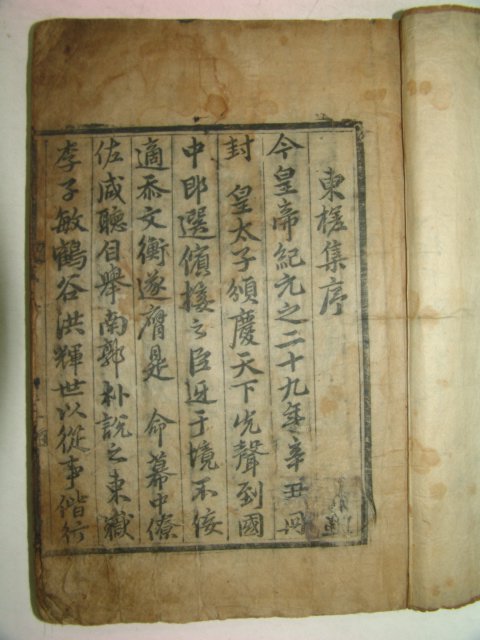 東槎集序
今皇帝紀元之二十九年辛丑冊
封 皇太子頒慶天下先聲到國
中卽選儐接之臣迓于境不佞
適忝文衡遂膺是 命幕中僚
佐咸聽自舉南郭朴說之東嶽
李子敏鶴谷洪輝世以從事偕行